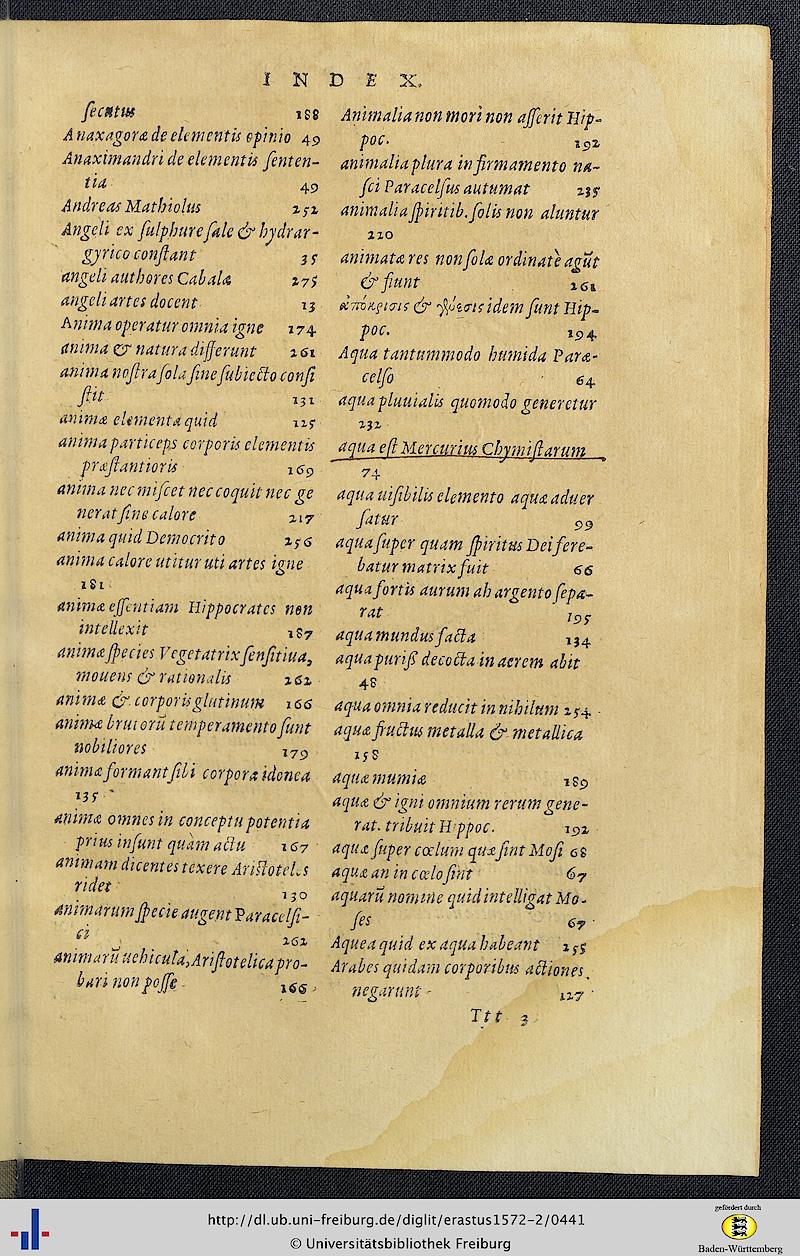 INDEX.
secutus 188
Anaxagoræ de elementis opinio 49
Anaximandri de elementis senten-
tia 49
Andreas Mathiolus 252
Angeli ex sulphure sale & hydrar-
gyrico constant 35
angeli authores Cabalæ 275
angeli artes docent 13
Anima operatur omnia igne 174
anima & natura differunt 261
anima nostra sola sine subiecto consi
stit 131
animæ elementa quid 125
anima particeps corporis elementis
præstantioris 169
anima nec miscet nec coquit nec ge
nerat sine calore 217
anima quid Democrito 256
anima calore utitur uti artes igne
181
animæ essentiam Hippocrates non
intellexit 187
animæ species Vegetatrix sensitiua,
mouens & rationalis 262
animæ & corporis glutinum 166
animæ brutorũ temperamento sunt
nobiliores 179
animæ formant sibi corpora idonea
135
animæ omnes in conceptu potentia
prius insunt quàm actu 167
animam dicentes texere Aristoteles
ridet 130
animarum specie augent Paracelsi-
ci 262
animarũ uehicula, Aristotelica pro-
bari non posse 166
Animalia non mori non asserit Hip-
poc. 192
animalia plura in firmamento na-
sci Paracelsus autumat 235
animalia spiritib. solis non aluntur
220
animatæ res non solæ ordinatè agũt
& fiunt 261
ἀπόκρισις & idem sunt Hip-
poc. 194
Aqua tantummodo humida Paræ-
celso 64
aqua pluuialis quomodo generetur
232
aqua est Mercurius Chymistarum
74
aqua uisibilis elemento aquæ aduer
satur 99
aqua super quam spiritus Dei fere-
batur matrix fuit 66
aqua fortis aurum ab argento sepa-
rat 195
aqua mundus facta 134
aqua puriß decocta in aerem abit
48
aqua omnia reducit in nihilum 254
aquæ fructus metalla & metallica
158
aquæ mumiæ 189
aquæ & igni omnium rerum gene-
rat. tribuit Hippoc. 192
aquæ super cœlum quæ sint Mosi 68
aquæ an in cœlo sint 67
aquarũ nomine quid intelligat Mo-
ses 67
Aquea quid ex aqua habeant 255
Arabes quidam corporibus actiones
negarunt 127
Ttt 3
http://dl.ub.uni-freiburg.de/diglit/erastus1572-2/0441
© Universitätsbibliothek Freiburg
gefördert durch
Baden-Württemberg